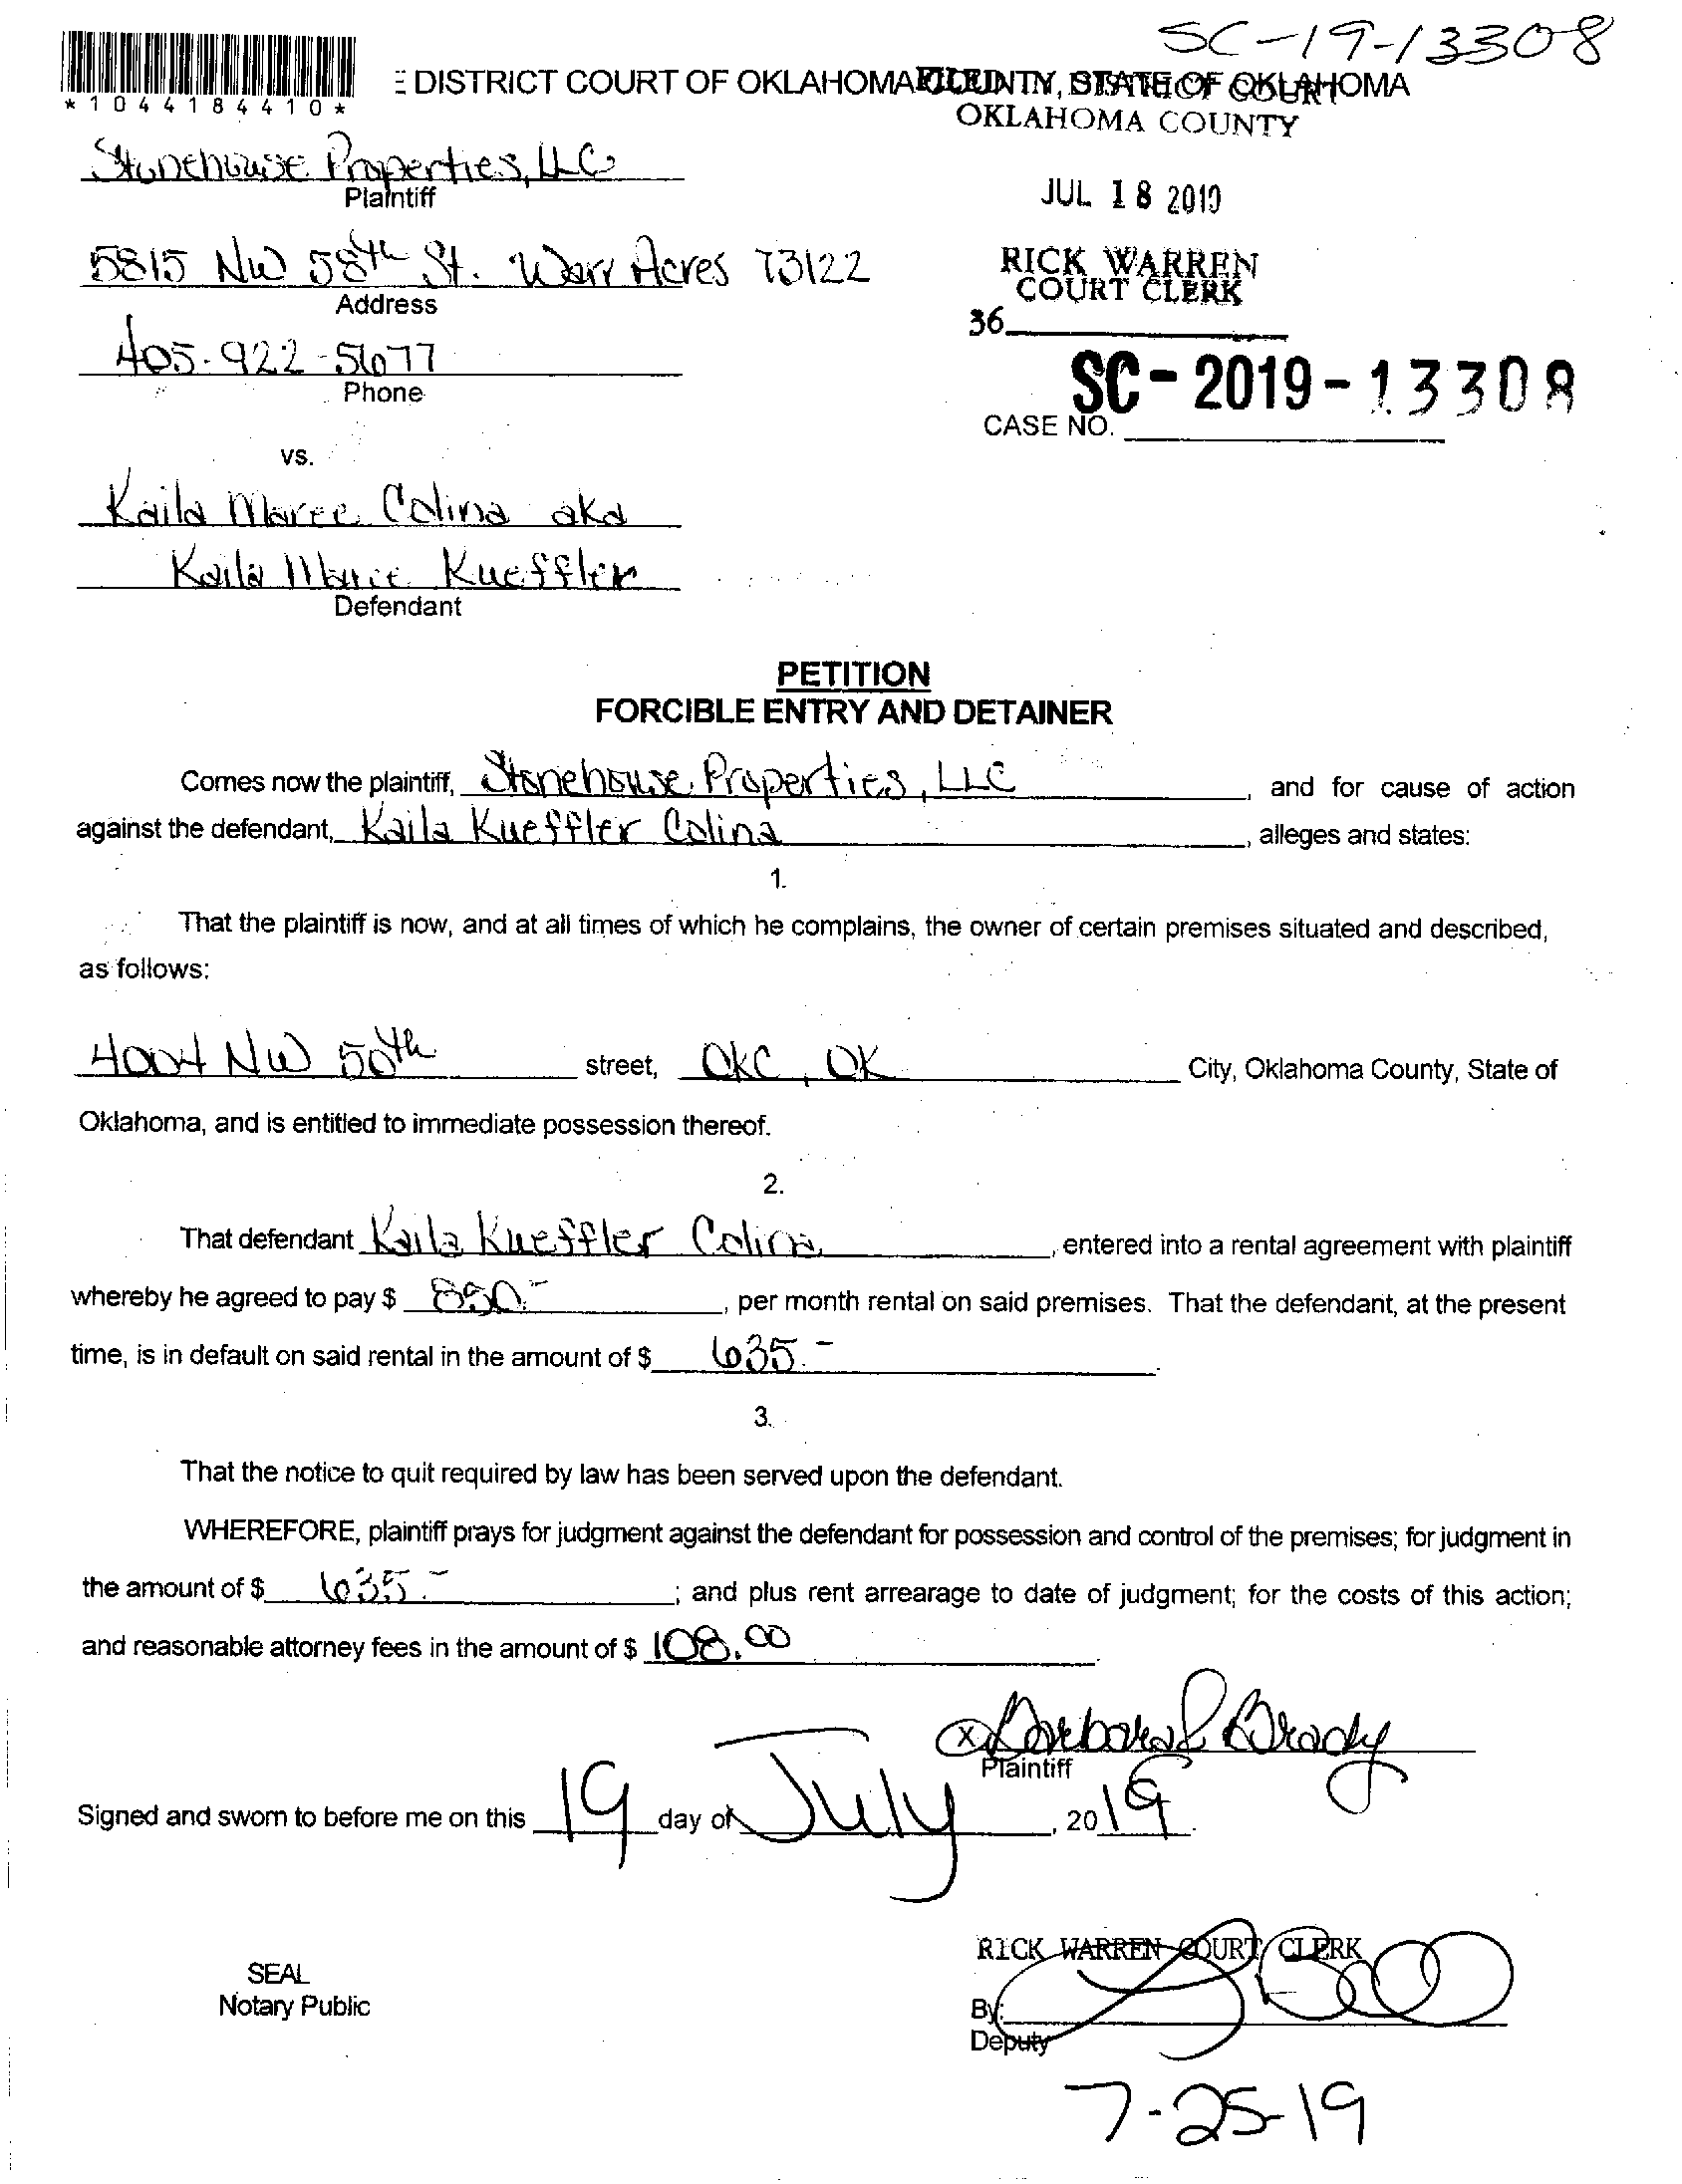 SC-19-13308
*1044184410*
E DISTRICT COURT OF OKLAHOMA COUNTY, STATE OF OKLAHOMA
FILED IN DISTRICT COURT
OKLAHOMA COUNTY
Stonehouse Properties, LLC
Plaintiff
JUL 18 2019
5815 NW 58th St. Warr Acres 73122
Address
RICK WARREN
COURT CLERK
36
405-922-5677
Phone
SC-2019-13308
CASE NO.
vs.
Kaila Maree Colina aka
Kaila Marie Kueffler
Defendant
PETITION
FORCIBLE ENTRY AND DETAINER
Comes now the plaintiff, Stonehouse Properties, LLC, and for cause of action
against the defendant, Kaila Kueffler Colina, alleges and states:
1.
That the plaintiff is now, and at all times of which he complains, the owner of certain premises situated and described,
as follows:
4004 NW 50th street, OKC, OK City, Oklahoma County, State of
Oklahoma, and is entitled to immediate possession thereof.
2.
That defendant Kaila Kueffler Colina, entered into a rental agreement with plaintiff
whereby he agreed to pay $ 850.-, per month rental on said premises. That the defendant, at the present
time, is in default on said rental in the amount of $ 635.-.
3.
That the notice to quit required by law has been served upon the defendant.
WHEREFORE, plaintiff prays for judgment against the defendant for possession and control of the premises; for judgment in
the amount of $ 635.-; and plus rent arrearage to date of judgment; for the costs of this action;
and reasonable attorney fees in the amount of $ 108.00.
x Barbara L Brady
Plaintiff
Signed and sworn to before me on this 19 day of July, 2019.
RICK WARREN COURT CLERK
SEAL
Notary Public
By:
Deputy
7-25-19